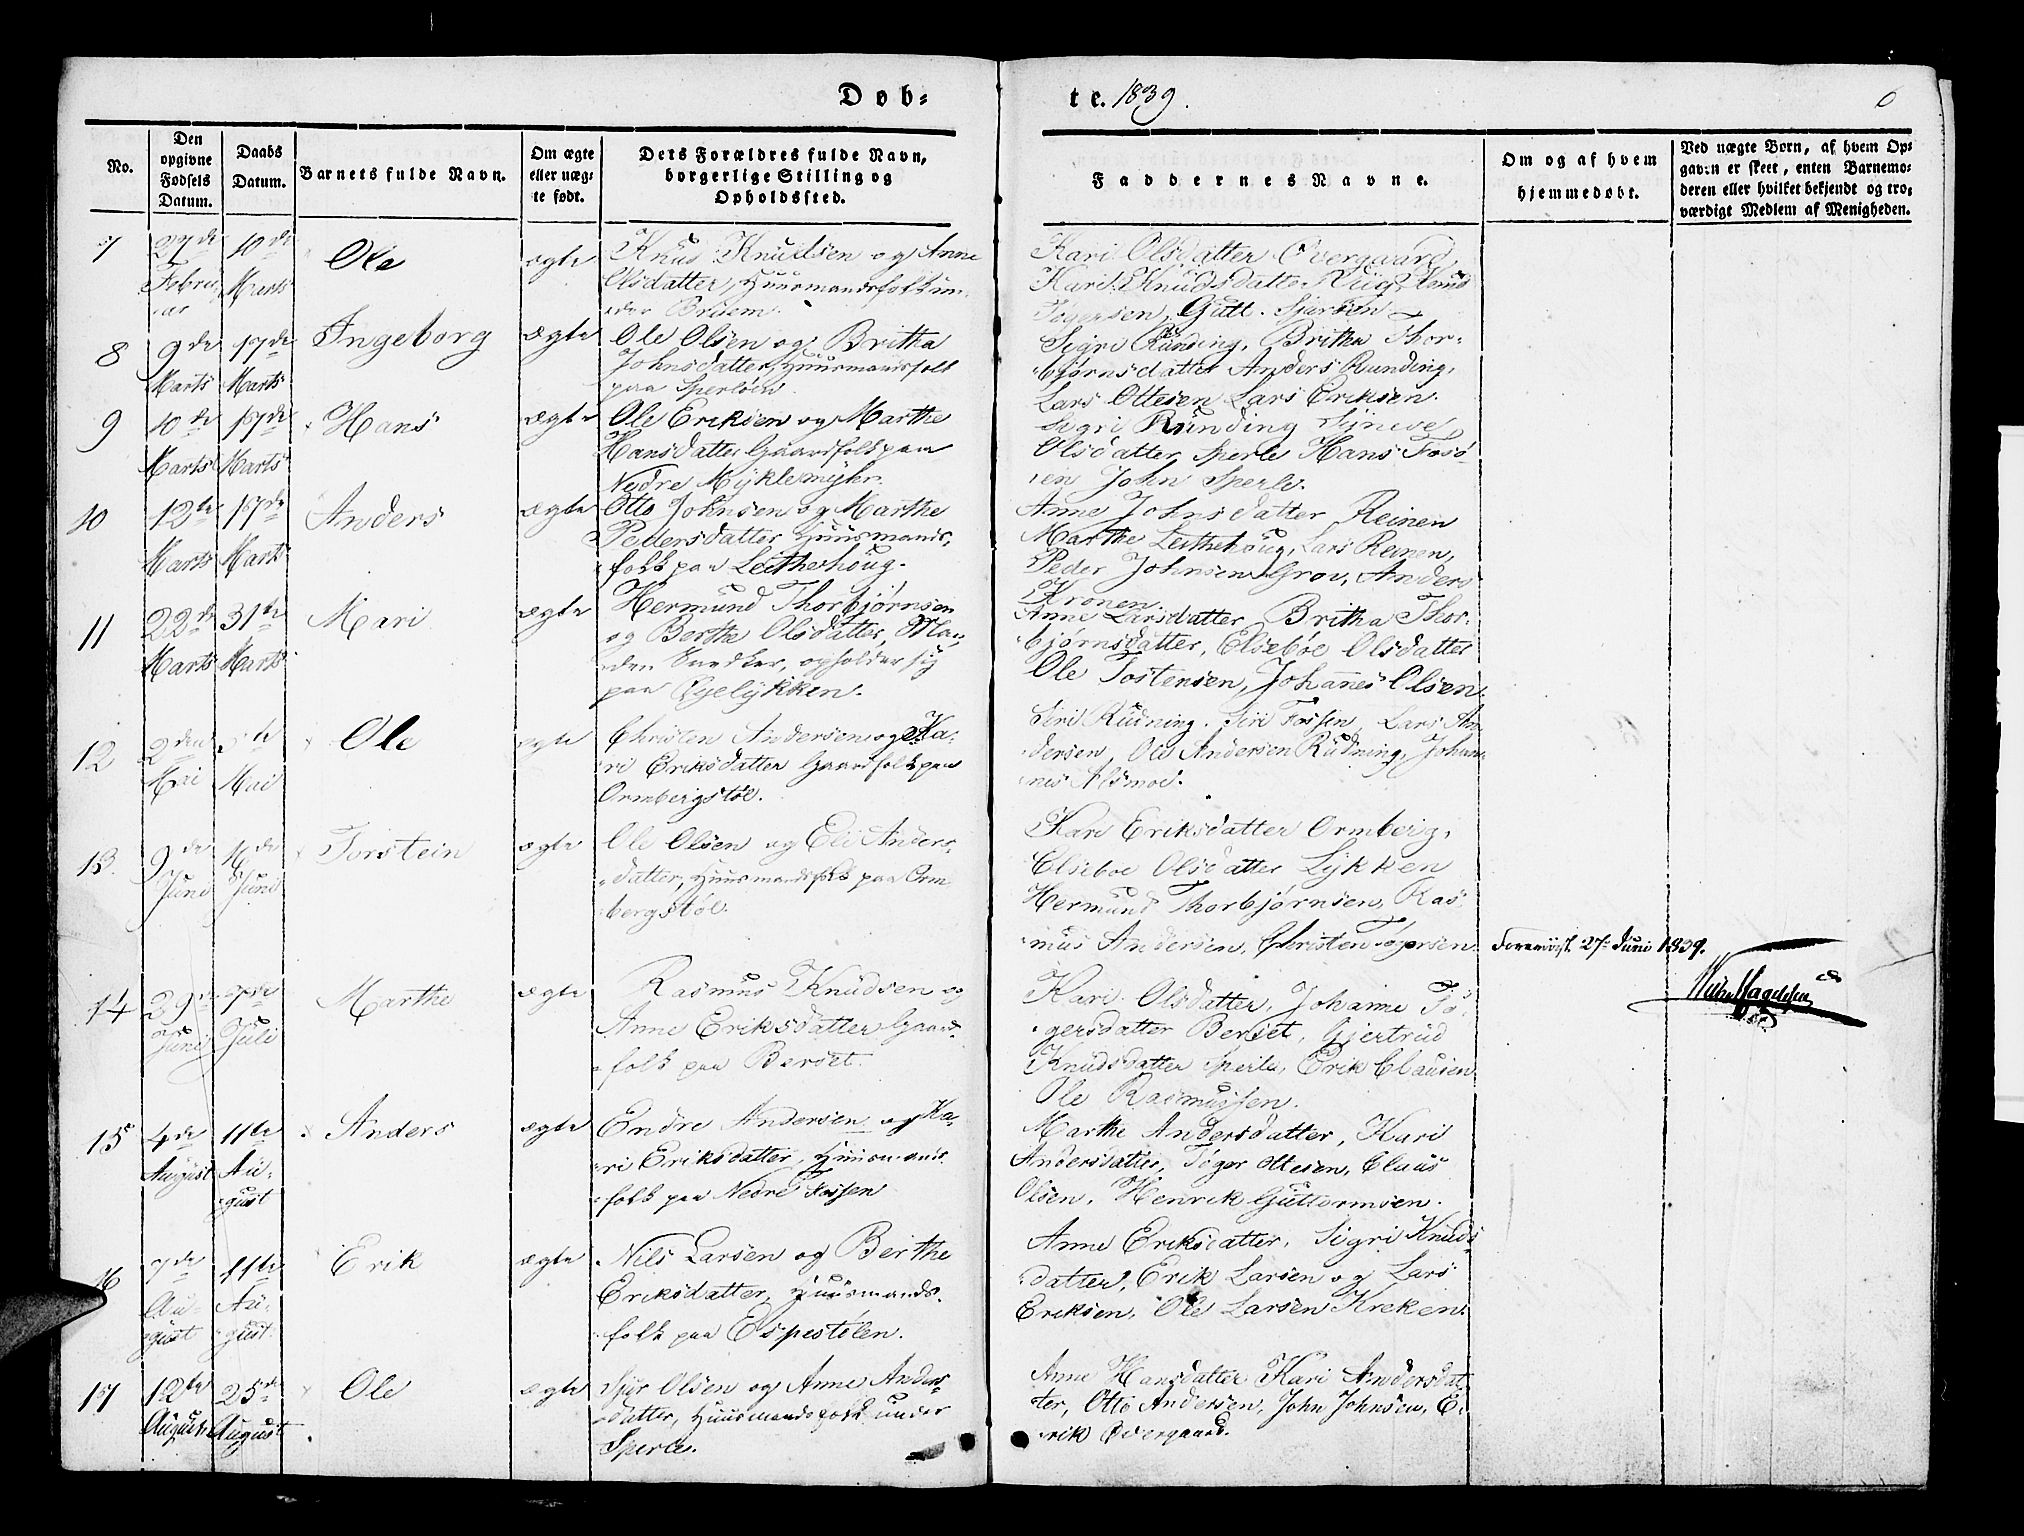 Døb-
te. 1839.
No.
Den opgivne Fødsels Datum.
Daabs Datum.
Barnets fulde Navn.
Om ægte eller uægte født.
Dets Forældres fulde Navn, borgerlige Stilling og Opholdssted.
Faddernes Navne.
Om og af hvem hjemmedøbt.
Ved uægte Børn, af hvem Opgaven er skeet, enten Barnemoderen eller hvilket bekjendt og troværdigt Medlem af Menigheden.
7
27de Februar
10de Marts
Ole
ægte
Knud Knudsen og Anne
Olsdatter, Huusmandsfolk un-
der Bruem.
Kari Olsdatter Overgaard,
Kari Knudsdatter Krug, Knud
Tøgersen, Gutt. Sjursen
8
9de Marts
17de Marts
Ingeborg
ægte
Ole Olsen og Britha
Johnsdatter, Huusmandsfolk
paa Sperleøen.
Sigri Runding, Britha Thor-
bjørnsdatter Anders Runding,
Lars Ottesen Lars Eriksen.
9
10de Marts
17de Marts
Hans
ægte
Ole Eriksen og Marthe
Hansdatter Gaardfolk paa
Nedre Myklemyhr.
Sigri Runding Synneve
Olsdatter Sperle Hans Fosø-
ien John Sperle.
10
12te Marts
17de Marts
Anders
ægte
Otto Johnsen og Marthe
Pedersdatter Huusmands-
folk paa Leithehoug.
Anne Johnsdatter Reinen
Marthe Leithehoug, Lars Reinen,
Peder Johnsen Grov, Anders
Kronen.
11
22de Marts
31te Marts
Mari
ægte
Hermund Thorbjørnsen
og Berthe Olsdatter, Man-
den Snedker, opholder sig
paa Øyelykken.
Anne Larsdatter Britha Thor-
bjørnsdatter, Elsebøe Olsdatter
Ole Tostensen, Johannes Olsen.
12
2den Mai
Mai
Ole
ægte
Christen Andersen og Ka-
ri Eriksdatter Gaardfolk paa
Ormbergstøl.
Siri Rudning. Siri Fossen, Lars An-
dersen, Ole Andersen Rudning, Johan-
nes Alsmoe.
13
9de Juni
16de Juni
Torstein
ægte
Ole Olsen og Eli Anders-
datter, Huusmandsfolk paa Orm
bergstøl.
Kari Eriksdatter Ormberg,
Elseboe Olsdatter Lykken
Hermund Thorbjørnsen, Ras-
mus Andersen, Christen Tøgersen.
Forevist 27de Juni 1839.
14
29de Juni
7de Juli
Marthe
ægte
Rasmus Knudsen og
Anne Eriksdatter Gaard-
folk paa Berset.
Kari Olsdatter, Johanne Tø-
gersdatter Berset, Gjertrud
Knudsdatter Sperle, Erik Clausen
Ole Rasmussen.
15
4de August
11te August
Anders
ægte
Endre Andersen og Ka-
ri Eriksdatter, Huusmands-
folk paa Nedre Fossen
Marthe Andersdatter, Kari
Andersdatter, Tøger Ottesen, Claus
Olsen, Henrik Guttormsen.
16
7de August
11te August
Erik
ægte
Nils Larsen og Berthe
Eriksdatter, Huusmands-
folk paa Espestølen.
Anne Eriksdatter, Sigri Knuds-
datter, Erik Larsen og Lars
Eriksen, Ole Larsen Kreken.
17
12te August
25de August
Ole
ægte
Sjur Olsen og Anne Anders-
datter, Huusmandsfolk under
Sperle.
Anne Hansdatter Kari Andersdat-
ter, Otto Andersen, John Johnsen, E-
rik Overgaard.